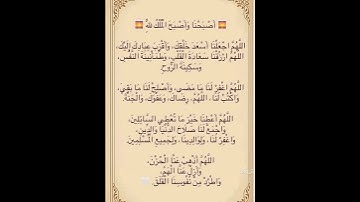 أَصْبَحْنَا وَأَصْبَحَ الْمُلْكُ لِلَّهِ
اللَّهُمَّ اجْعَلْنَا أَسْعَدَ خَلْقِكَ، وَأَقْرَبَ عِبَادِكَ إِلَيْكَ،
اللَّهُمَّ ارْزُقْنَا سَعَادَةَ الْقَلْبِ، وَطُمَأْنِينَةَ النَّفْسِ،
وَسَكِينَةَ الرُّوحِ.
اللَّهُمَّ اغْفِرْ لَنَا مَا مَضَى، وَأَصْلِحْ لَنَا مَا بَقِيَ،
وَاكْتُبْ لَنَا، اللَّهُمَّ، رِضَاكَ، وَعَفْوَكَ، وَالْجَنَّةَ.
اللَّهُمَّ أَعْطِنَا خَيْرَ مَا تُعْطِي السَّائِلِينَ،
وَاجْمَعْ لَنَا صَلَاحَ الدُّنْيَا وَالدِّينِ،
وَاغْفِرْ لَنَا، وَلِوَالِدِينَا، وَلِجَمِيعِ الْمُسْلِمِينَ.
اللَّهُمَّ أَذْهِبْ عَنَّا الْحُزْنَ،
وَأَزِلْ عَنَّا الْهَمَّ،
وَاطْرُدْ مِنْ نُفُوسِنَا الْقَلَقَ.